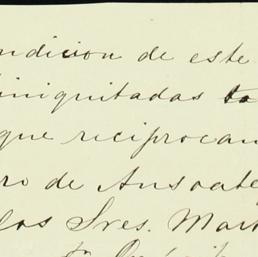 ndicion de este
iniquitadas to
que reciprocam
ro de Ansoate
los Sres. Mart